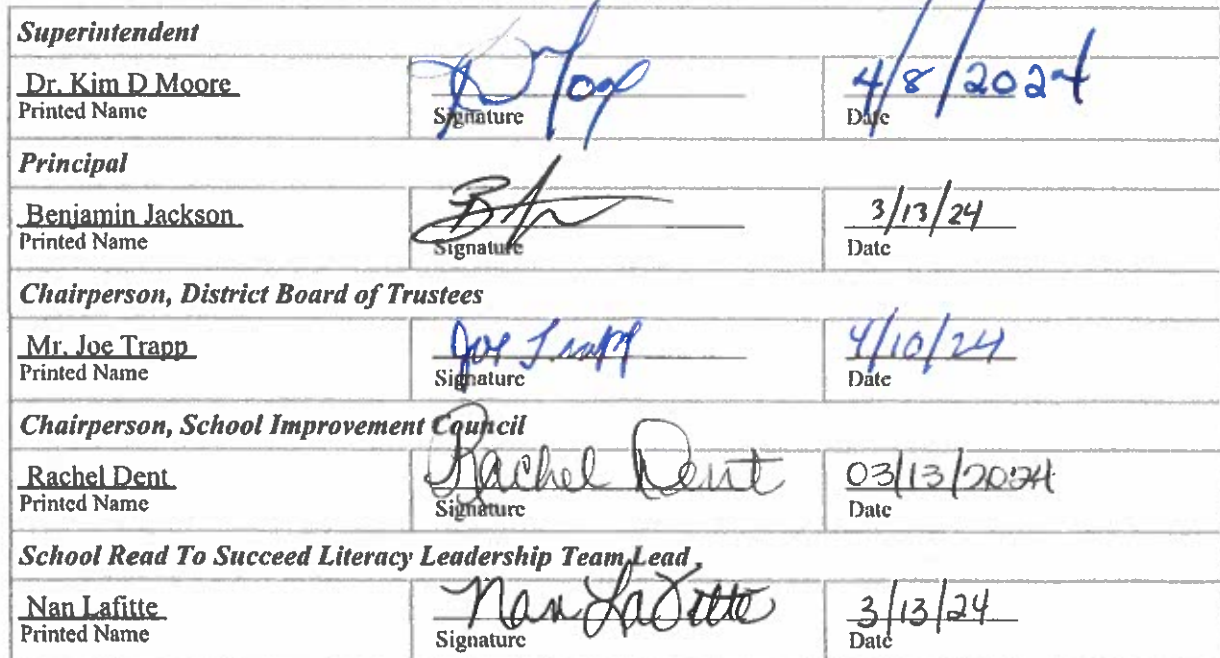 Superintendent
Dr. Kim D Moore 4/8/2024
Printed Name Signature Date
Principal
Benjamin Jackson 3/13/24
Printed Name Signature Date
Chairperson, District Board of Trustees
Mr. Joe Trapp Joe Trapp 4/10/24
Printed Name Signature Date
Chairperson, School Improvement Council
Rachel Dent Rachel Dent 03/13/2024
Printed Name Signature Date
School Read To Succeed Literacy Leadership Team Lead
Nan Lafitte Nan LaFitte 3/13/24
Printed Name Signature Date